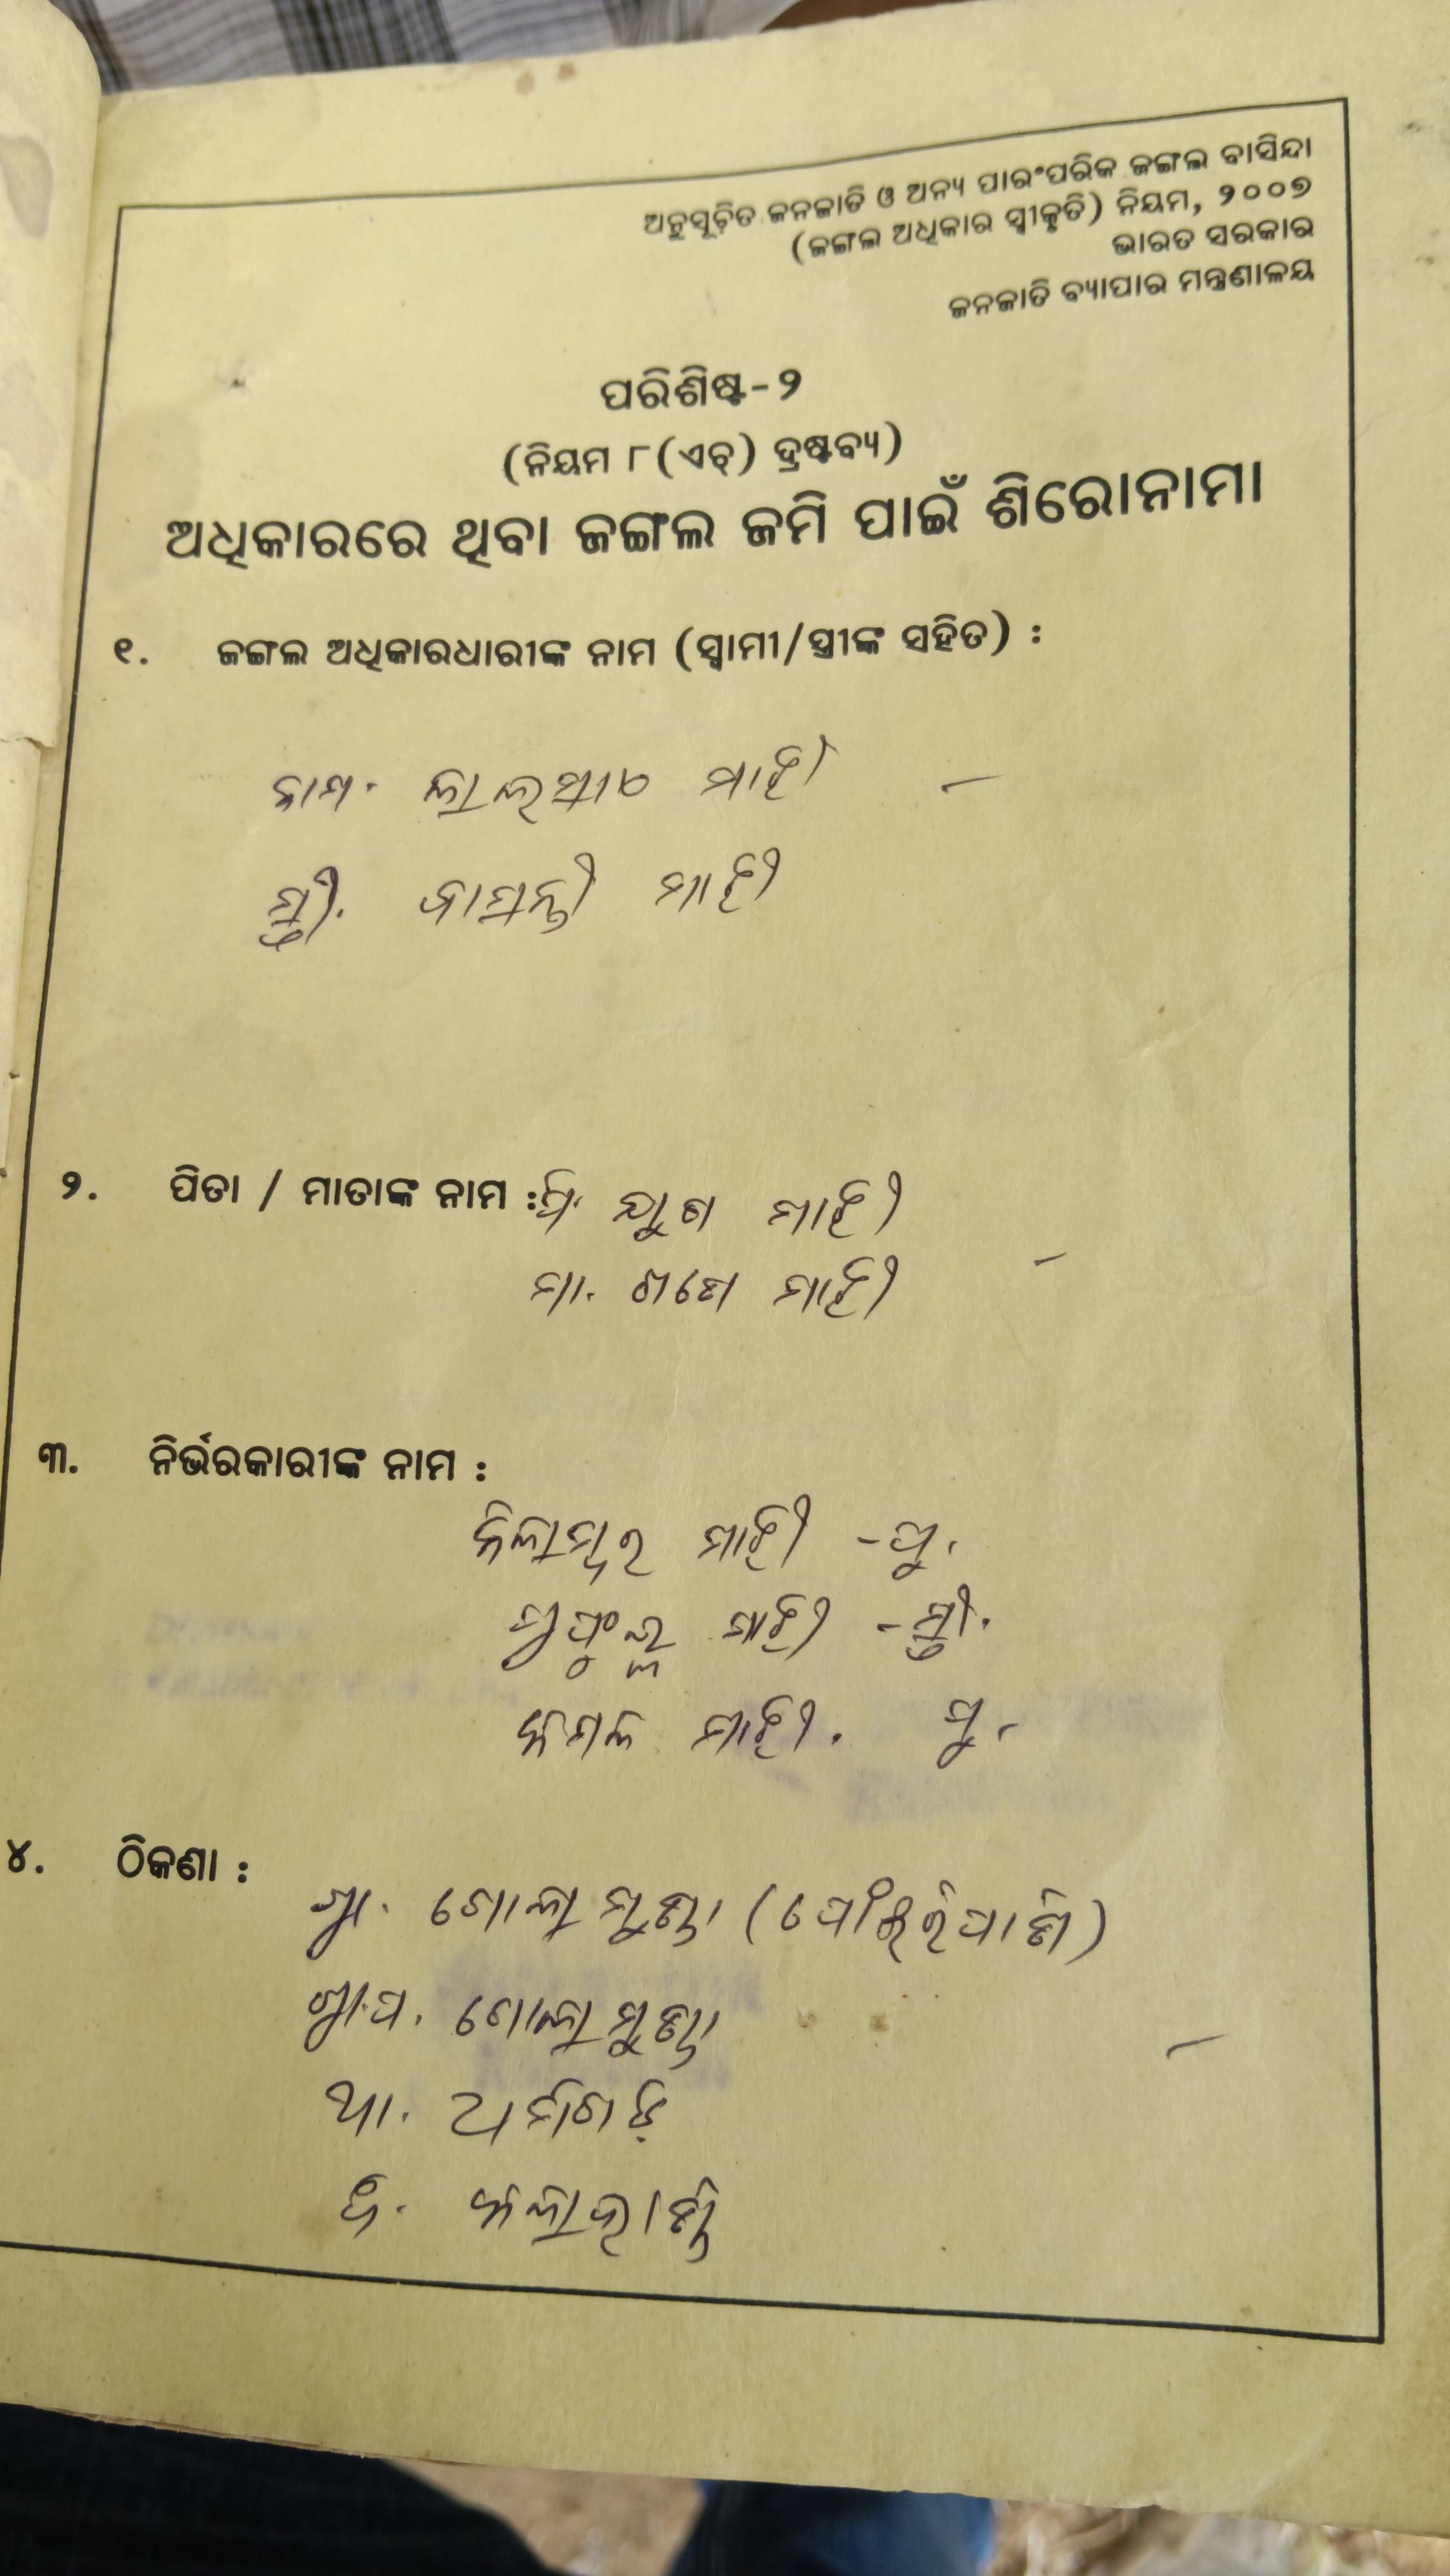 ଅନୁସୂଚିତ ଜନଜାତି ଓ ଅନ୍ୟ ପାରଂପରିକ ଜଙ୍ଗଲ ବାସିନ୍ଦା
(ଜଙ୍ଗଲ ଅଧିକାର ସ୍ୱୀକୃତି) ନିୟମ, ୨୦୦୭
ଭାରତ ସରକାର
ଜନଜାତି ବ୍ୟାପାର ମନ୍ତ୍ରଣାଳୟ
ପରିଶିଷ୍ଟ-୨
(ନିୟମ ୮(ଏଚ୍) ଦ୍ରଷ୍ଟବ୍ୟ)
ଅଧିକାରରେ ଥିବା ଜଙ୍ଗଲ ଜମି ପାଇଁ ଶିରୋନାମା
୧. ଜଙ୍ଗଲ ଅଧିକାରଧାରୀଙ୍କ ନାମ (ସ୍ୱାମୀ/ସ୍ତ୍ରୀଙ୍କ ସହିତ) :
ନାମ. ମାଝି
ସ୍ତ୍ରୀ. ବାସନ୍ତୀ ମାଝି
୨. ପିତା / ମାତାଙ୍କ ନାମ : ପି. ମାଝି
ମା. ମାଝି
୩. ନିର୍ଭରକାରୀଙ୍କ ନାମ :
ନିଲାମ୍ବର ମାଝି - ପୁ.
ମାଝି - ସ୍ତ୍ରୀ.
ମାଝି. ପୁ.
୪. ଠିକଣା :
ଗ୍ରା. ଗୋଲାମୁଣ୍ଡା
ଗ୍ରା.ପ. ଗୋଲାମୁଣ୍ଡା
ଥା.
ଜି. କଳାହାଣ୍ଡି